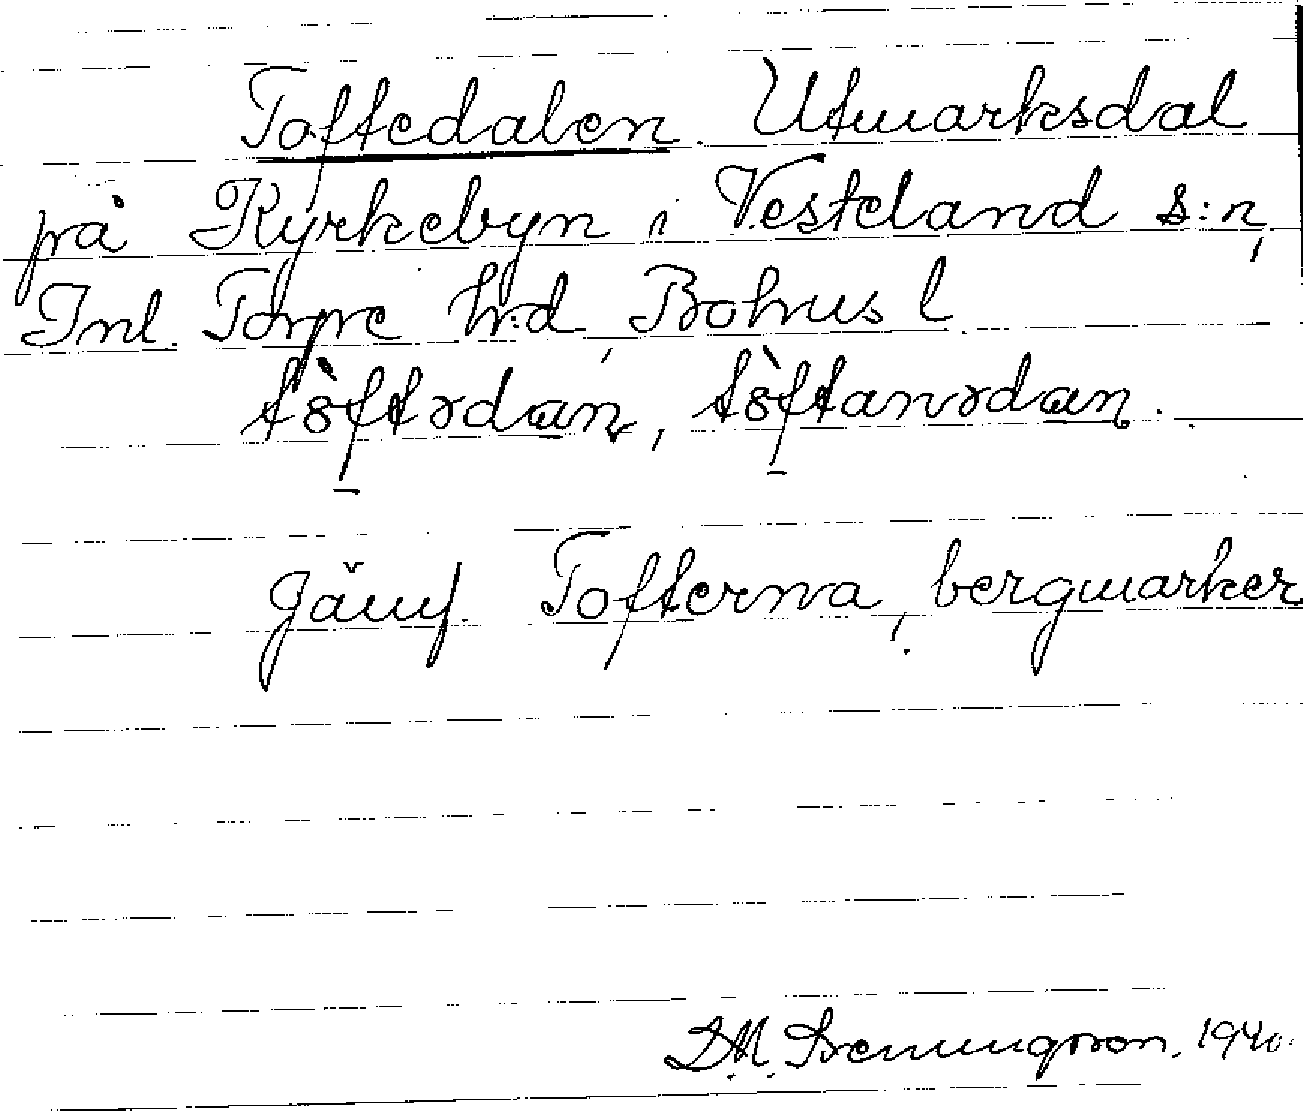 Toftedalen Utmarksdal
på Kyrkebyn i Vesteland s:n,
Inl. Torpe h:d, Bohus l
tòftədan, tòftanədan.
Jämf. Tofterna, bergmarker
1940.